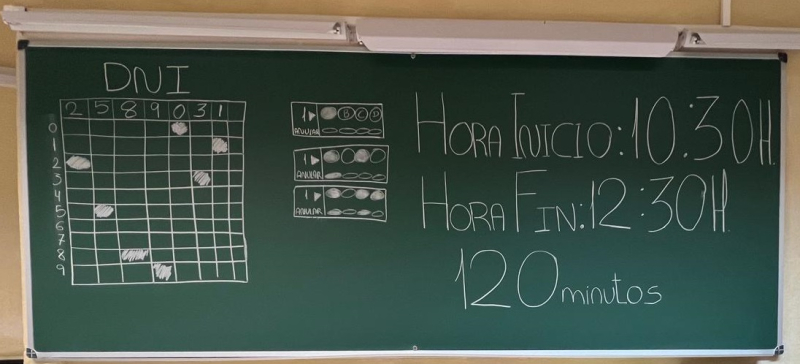 DNI
2 5 8 9 0 3 1
0
1
2
3
4
5
6
7
8
9
1 B C D
ANULAR
1
ANULAR
1
ANULAR
HORA INICIO: 10:30H.
HORA FIN: 12:30H.
120 minutos